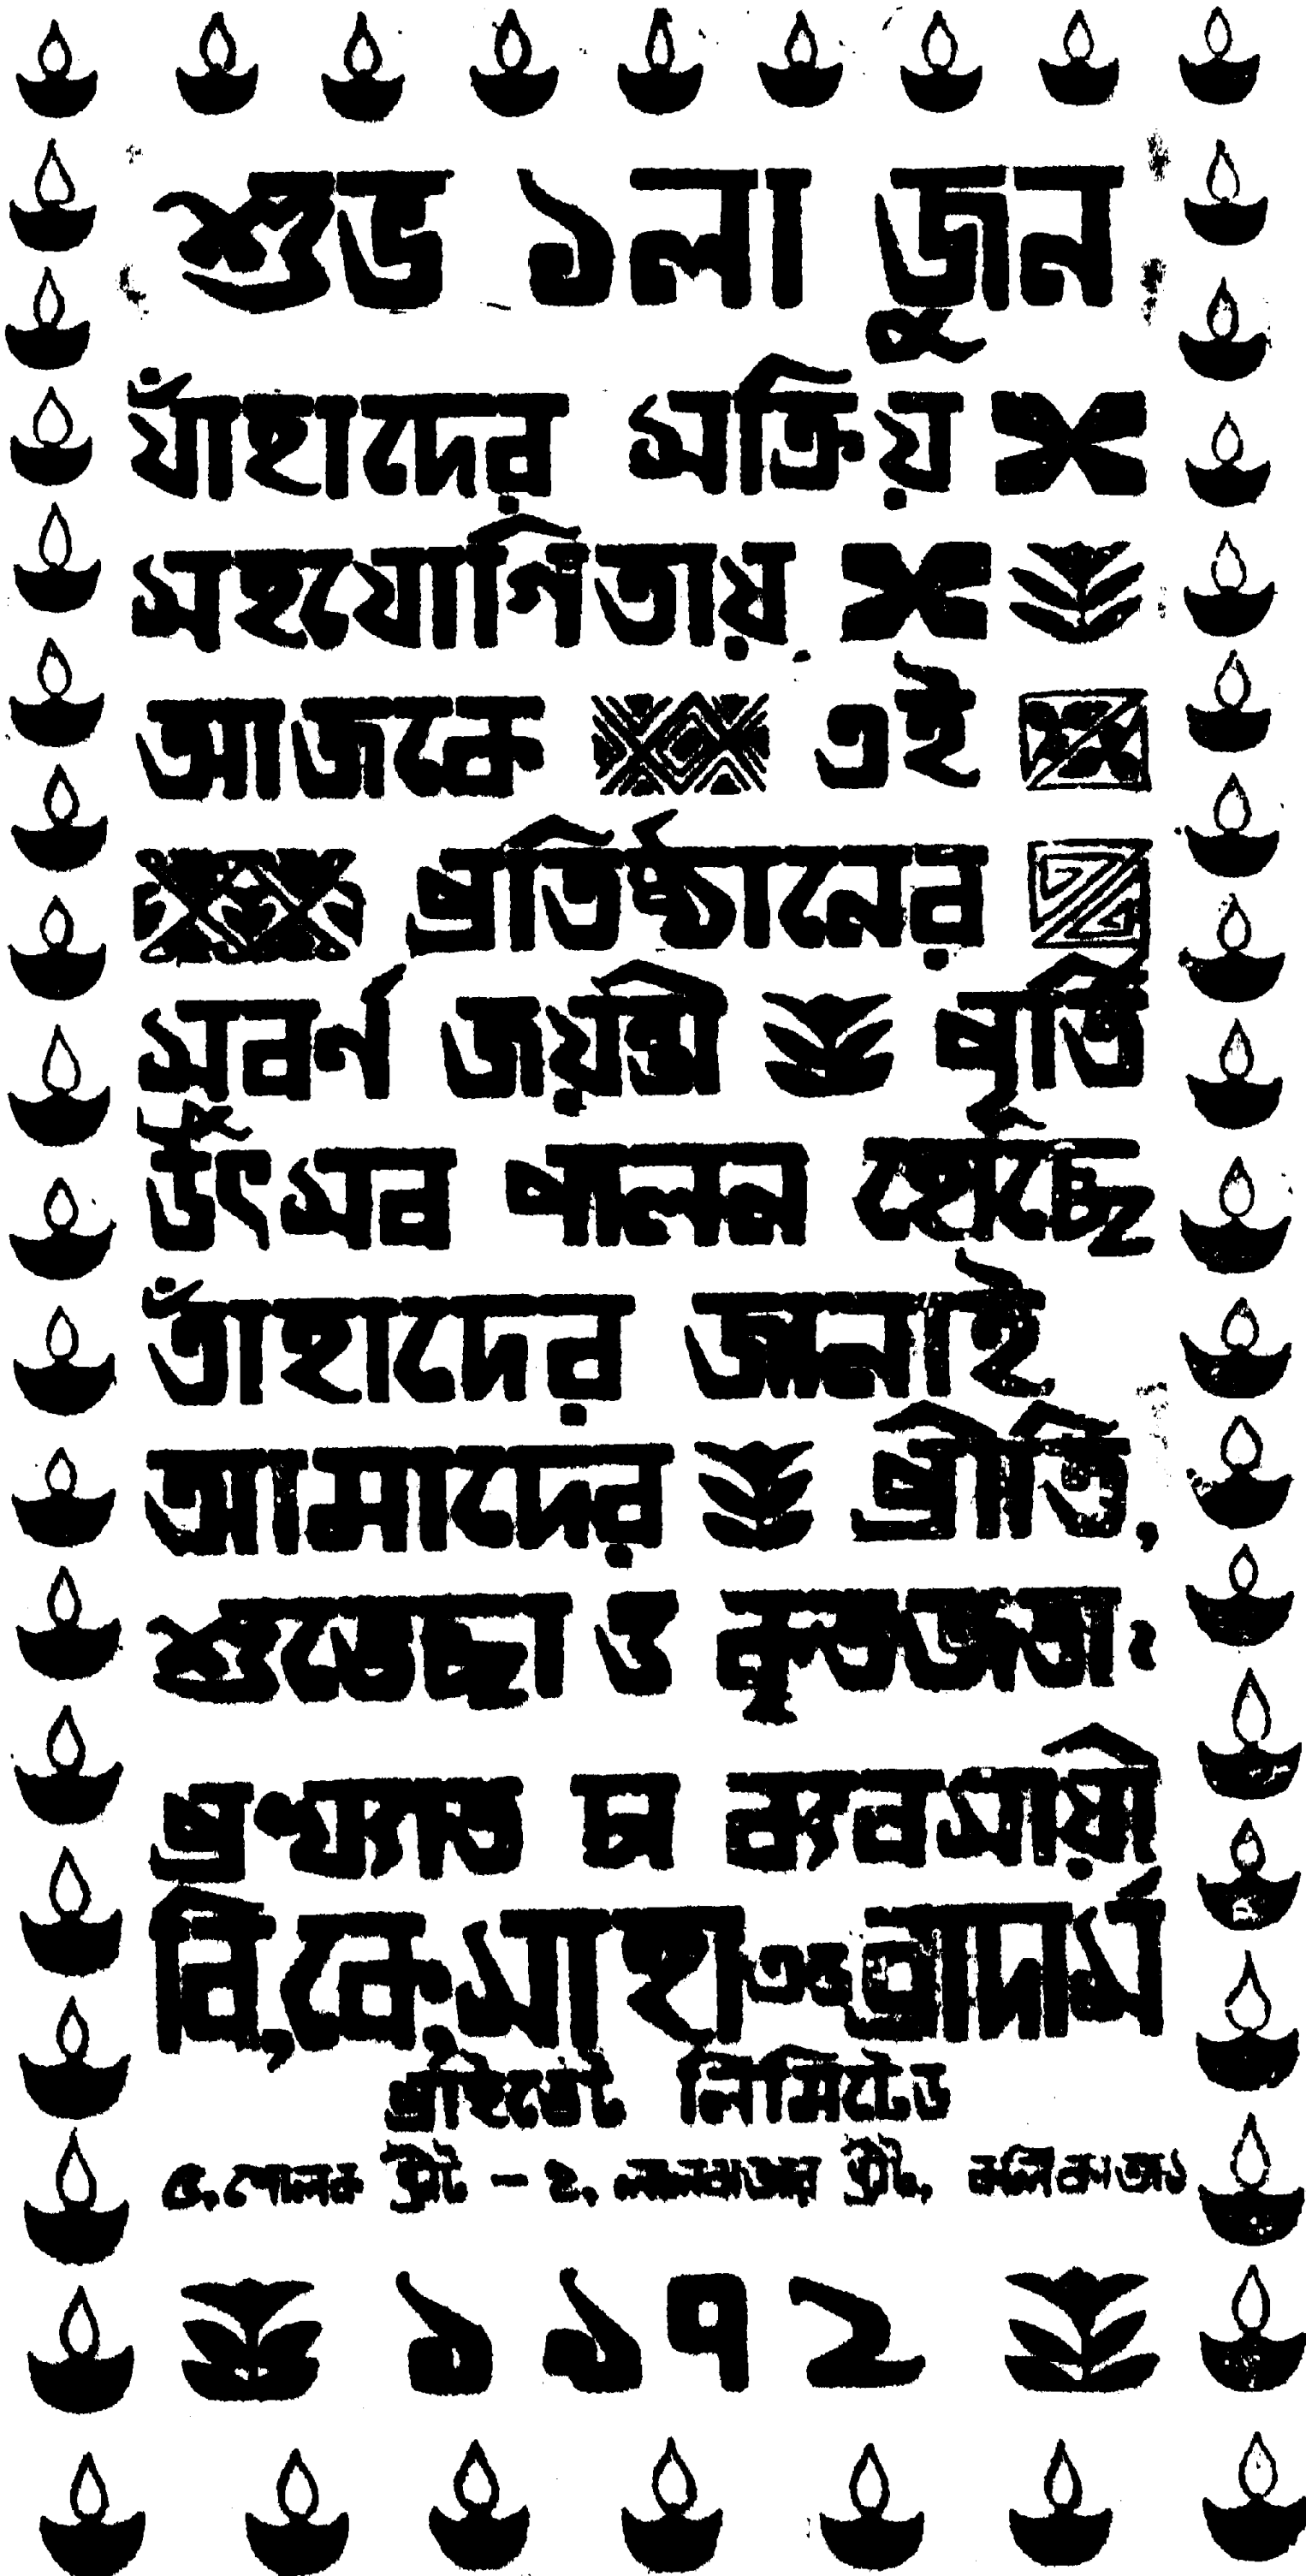 শুভ ১লা জুন
যাঁহাদের সক্রিয়
সহযোগিতায়
আজকে এই
প্রতিষ্ঠানের
সুবর্ণ জয়ন্তী পূর্তি
উৎসব পালন হোচ্ছে
তাঁহাদের জানাই
আমাদের প্রীতি,
শুভেচ্ছা ও কৃতজ্ঞতা:
প্রখ্যাত চা ব্যবসায়ী
বি, কে, সাহা এণ্ড ব্রাদার্স
প্রাইভেট লিমিটেড
৫, পোলক স্ট্রীট - ২, লালবাজার স্ট্রীট, কলিকাতা ১
১৯৭২